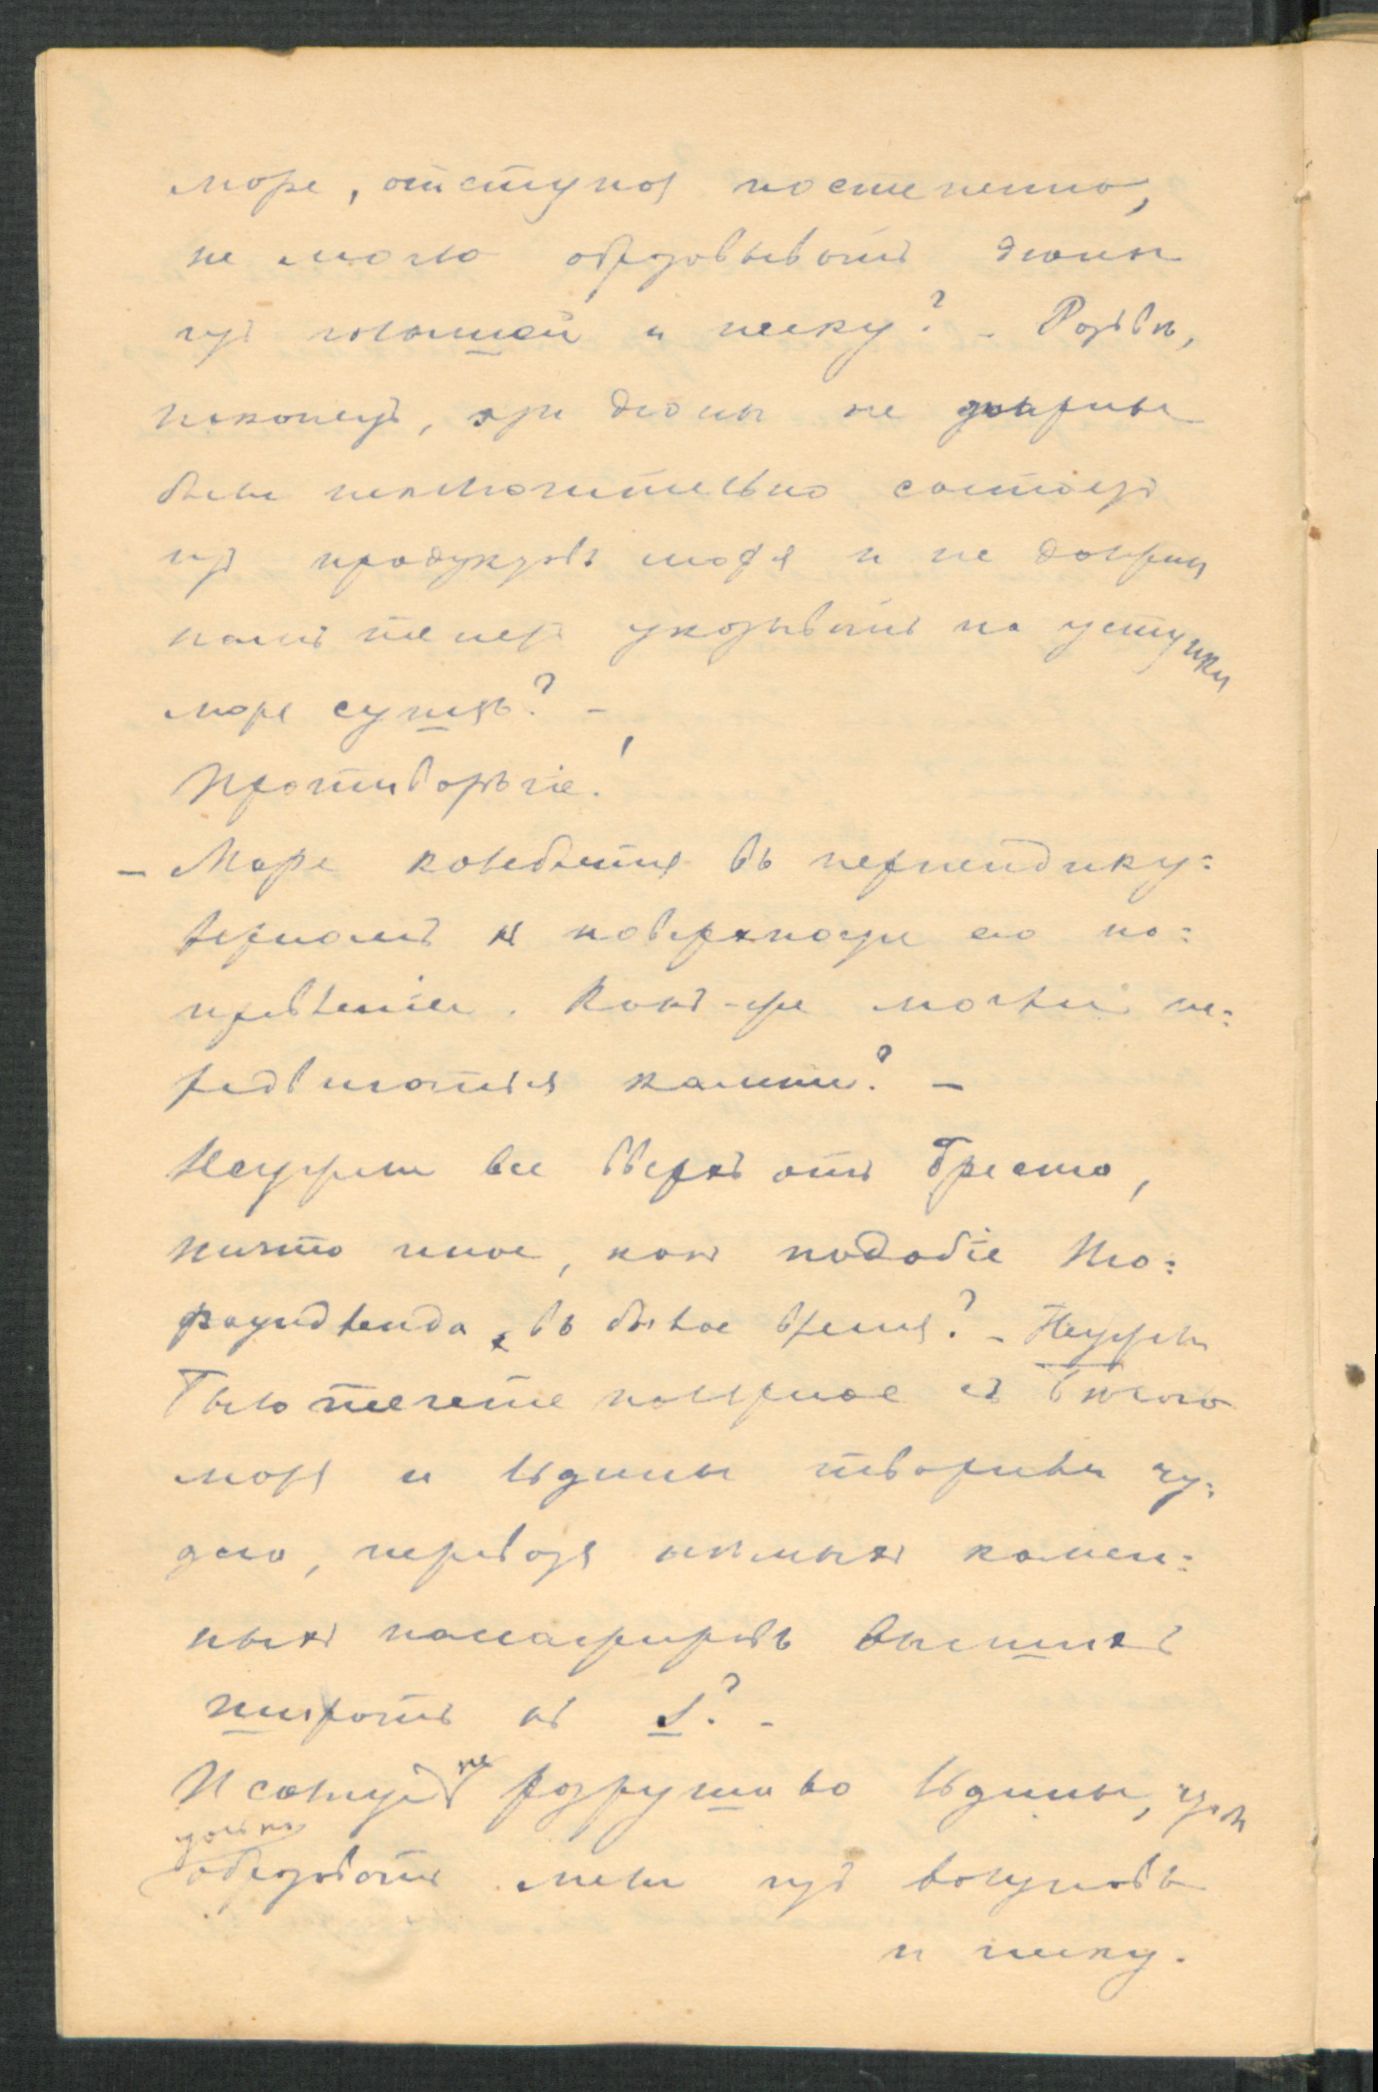 море, отступая постепенно,
не могло образовывать дюны
изъ голышей и песку? - Развѣ,
наконецъ, эти дюны не должны
были исключительно состоять
изъ продуктовъ моря и не должны
намъ теперь указывать на уступки
моря сушѣ? -
Противорѣчіе!
- Море колеблется въ перпендику=
лярномъ къ поверхности его на=
правленіи. Какъ-же могли пе=
редвигаться камни? -
Неужели все вверхъ отъ Бреста,
ничто иное, какъ подобіе Нью=
фаундленда въ былое время? - Неужели
было теченіе полярное съ Бѣлаго
моря и льдины творили чу=
деса, перевозя нѣмыхъ камен=
ныхъ пассажировъ высшихъ
широтъ къ S? -
И солнце не разрушало льдины, чтобъ
только образовать мели изъ валуновъ
и песку.